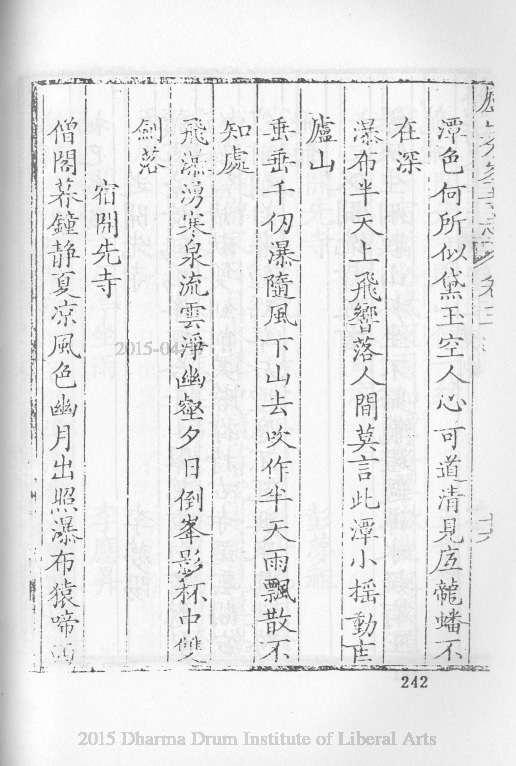 潭色何所似黛玉空人心可道清見底龍蟠不
在深
瀑布半天上飛響落人間莫言此潭小搖動匡
廬山
垂垂千仞瀑隨風下山去吹作半天雨飄散不
知處
飛瀑湧寒泉流雲淨幽壑夕日倒峯影杯中雙
劍落
宿開先寺
僧閣暮鐘靜夏凉風色幽月出照瀑布猿啼
242
2015-04
2015 Dharma Drum Institute of Liberal Arts